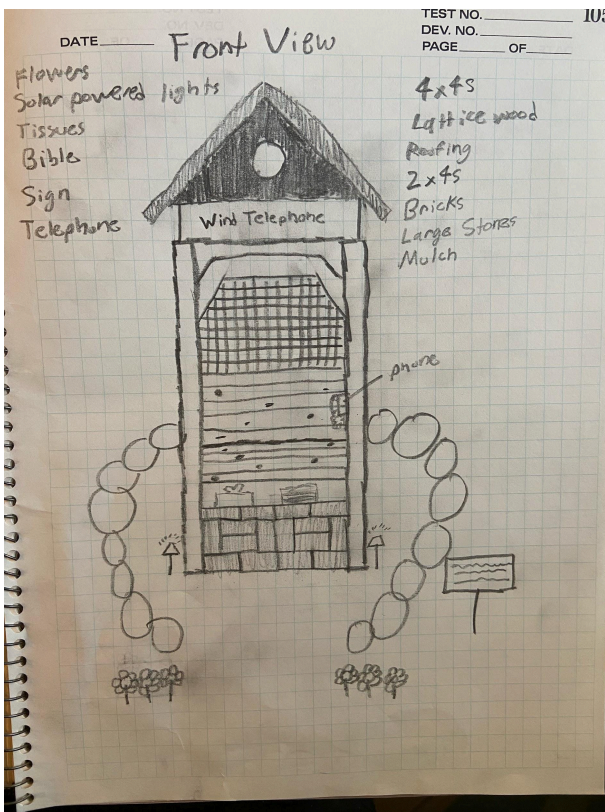 TEST NO.
105
DEV. NO.
DATE
PAGE OF
Front View
Flowers
Solar powered lights
Tissues
Bible
Sign
Telephone
4x4s
Lattice wood
Roofing
2x4s
Bricks
Large Stones
Mulch
Wind Telephone
phone